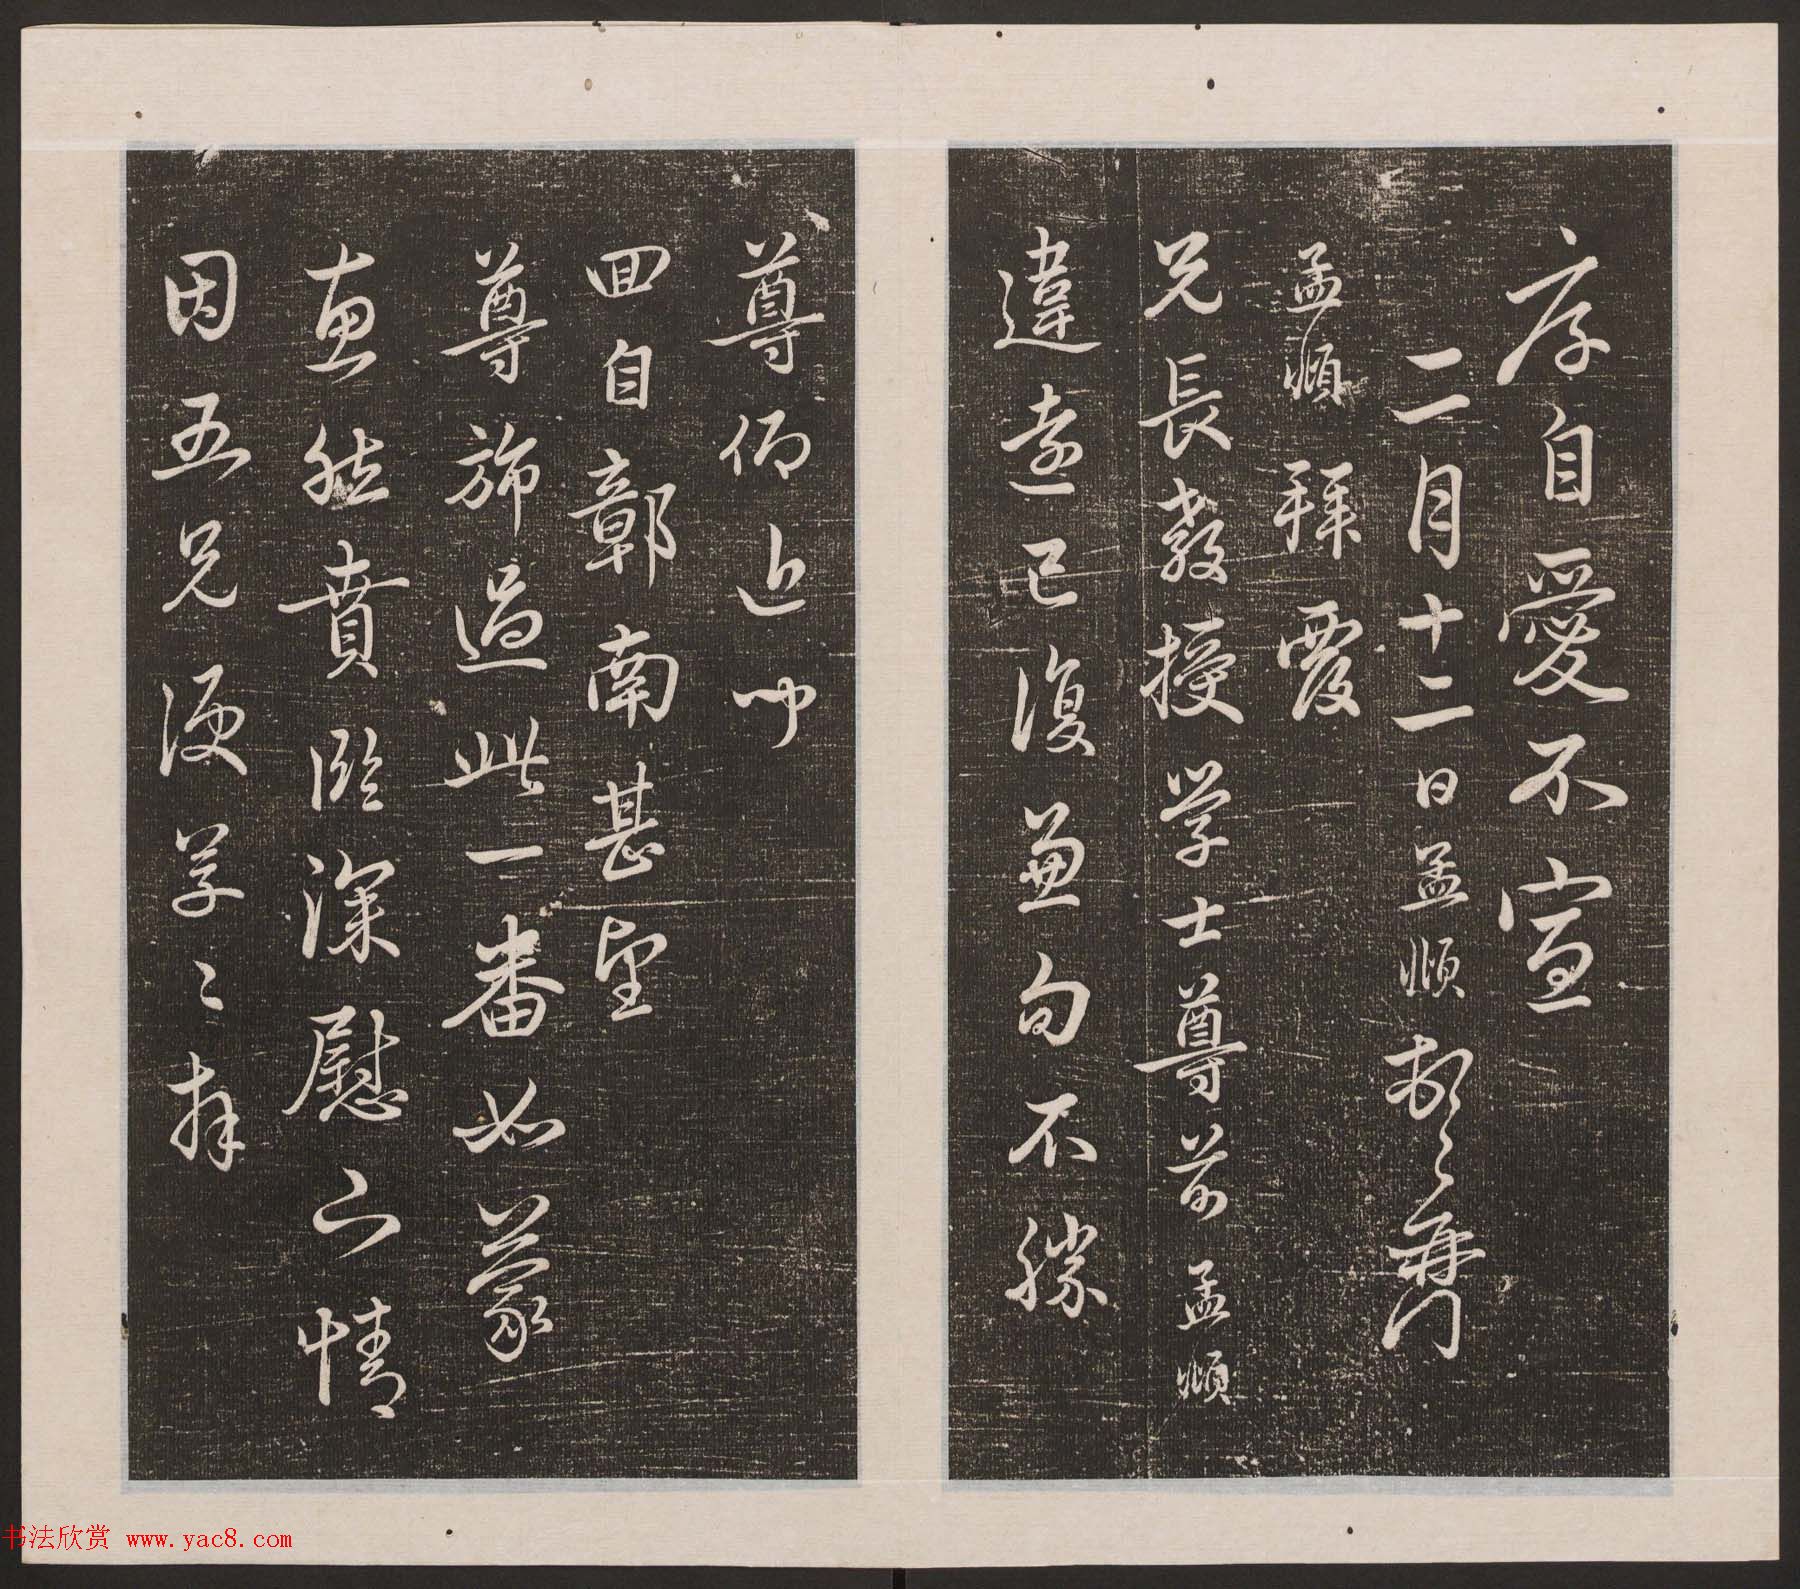 序自愛不宣
二月十二日孟頫頓首
孟頫拜覆
兄長教授學士尊前孟頫
違遠已復兼旬不勝
尊仰近聞
囬自鄣南甚望
尊斾過此一番如蒙
惠然賁臨深慰下情
因五兄便草草拜
书法欣赏 www.yac8.com